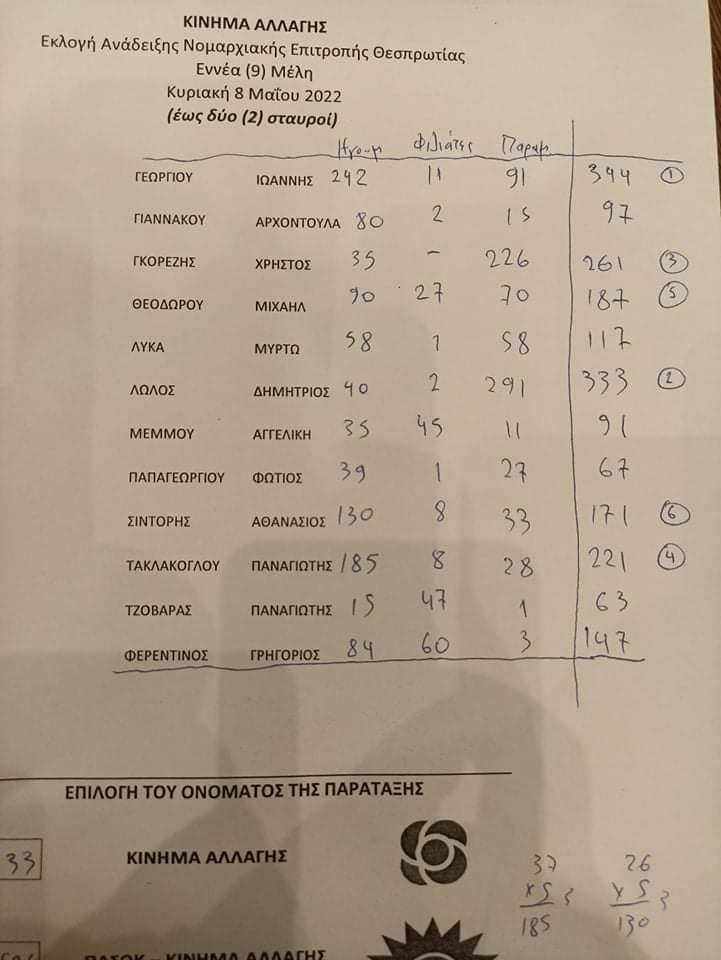 ΚΙΝΗΜΑ ΑΛΛΑΓΗΣ
Εκλογή Ανάδειξης Νομαρχιακής Επιτροπής Θεσπρωτίας
Εννέα (9) Μέλη
Κυριακή 8 Μαΐου 2022
(έως δύο (2) σταυροί)
Ηγουμ Φιλιάτες Παραμ
ΓΕΩΡΓΙΟΥ ΙΩΑΝΝΗΣ 242 11 91 344 1
ΓΙΑΝΝΑΚΟΥ ΑΡΧΟΝΤΟΥΛΑ 80 2 15 97
ΓΚΟΡΕΖΗΣ ΧΡΗΣΤΟΣ 35 - 226 261 3
ΘΕΟΔΩΡΟΥ ΜΙΧΑΗΛ 90 27 70 187 5
ΛΥΚΑ ΜΥΡΤΩ 58 1 58 117
ΛΩΛΟΣ ΔΗΜΗΤΡΙΟΣ 40 2 291 333 2
ΜΕΜΜΟΥ ΑΓΓΕΛΙΚΗ 35 45 11 91
ΠΑΠΑΓΕΩΡΓΙΟΥ ΦΩΤΙΟΣ 39 1 27 67
ΣΙΝΤΟΡΗΣ ΑΘΑΝΑΣΙΟΣ 130 8 33 171 6
ΤΑΚΛΑΚΟΓΛΟΥ ΠΑΝΑΓΙΩΤΗΣ 185 8 28 221 4
ΤΖΟΒΑΡΑΣ ΠΑΝΑΓΙΩΤΗΣ 15 47 1 63
ΦΕΡΕΝΤΙΝΟΣ ΓΡΗΓΟΡΙΟΣ 84 60 3 147
ΕΠΙΛΟΓΗ ΤΟΥ ΟΝΟΜΑΤΟΣ ΤΗΣ ΠΑΡΑΤΑΞΗΣ
33 ΚΙΝΗΜΑ ΑΛΛΑΓΗΣ
37 26
x 5 x 5
185 130
ΠΑΣΟΚ – ΚΙΝΗΜΑ ΑΛΛΑΓΗΣ